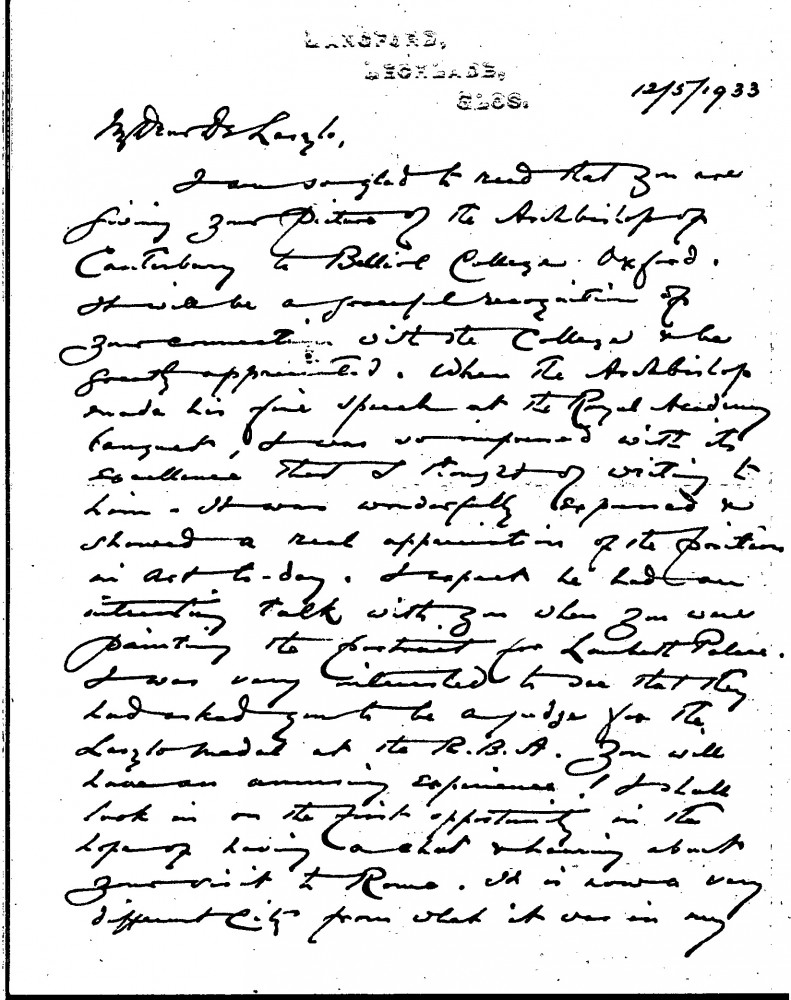 LANGFORD,
LECHLADE,
GLOS.
12/5/1933
My Dear De Laszlo,
I am so glad to read that you are
giving your picture of the Archbishop of
Canterbury to Balliol College Oxford.
It will be a graceful recognition of
your connection with the College & be
greatly appreciated. When the Archbishop
made his fine speech at the Royal Academy
banquet, I was so impressed with its
excellence that I thought of writing to
him. It was wonderfully expressed &
showed a real appreciation of the position
in Art to-day. I expect he had an
interesting talk with you when you were
painting the portrait for Lambeth Palace.
I was very interested to see that they
had asked you to be a judge for the
Laszlo medal at the R.B.A. You will
have an amusing experience! I shall
look in on the first opportunity in the
hope of having a chat & hearing about
your visit to Rome. It is now a very
different City from what it was in my